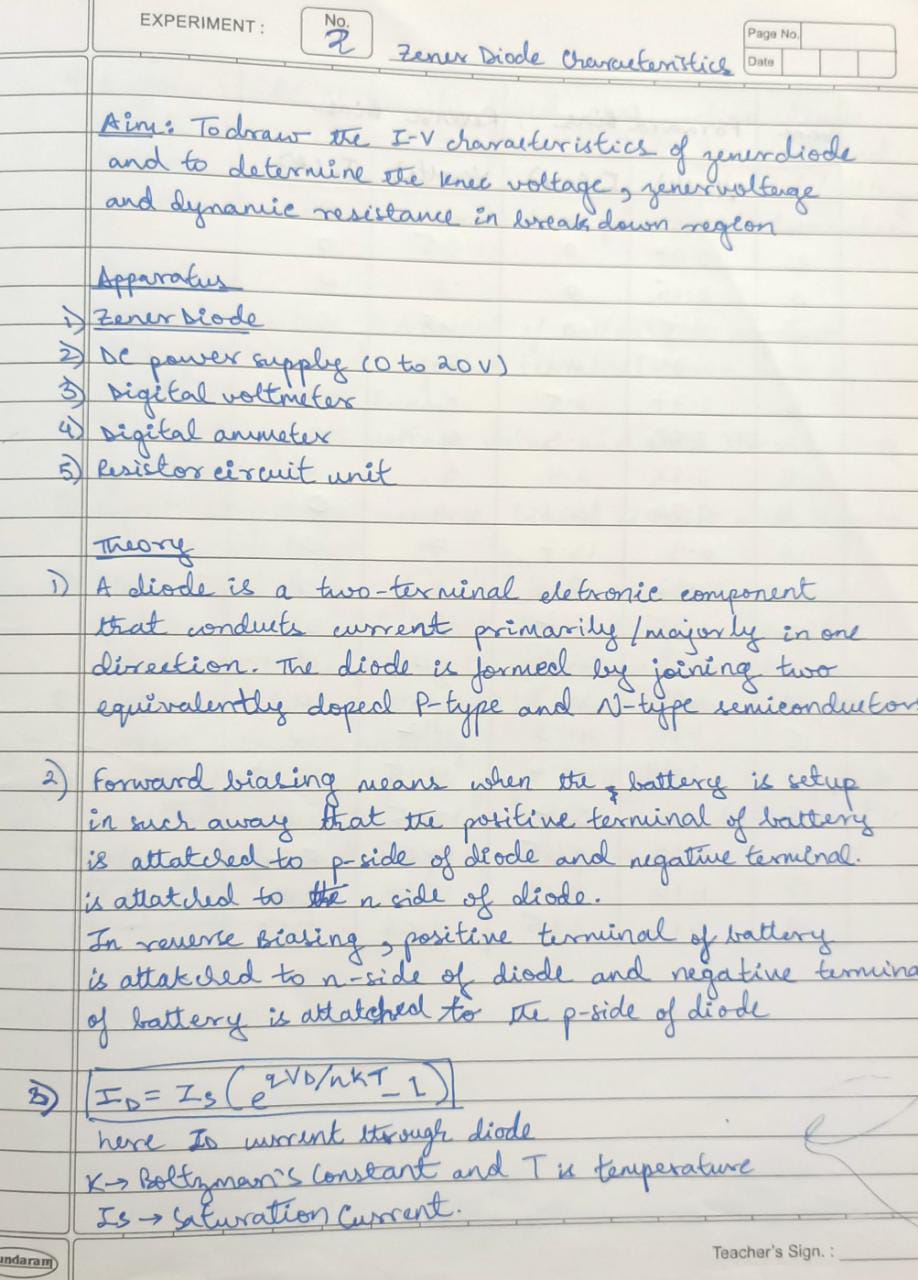 EXPERIMENT :
No.
2
Zener Diode Characteristics
Page No.
Date
Aim: To draw the I-V characteristics of zener diode
and to determine the knee voltage, zener voltage
and dynamic resistance in break down region
Apparatus
1) Zener Diode
2) DC power supply (0 to 20V)
3) Digital voltmeter
4) Digital ammeter
5) Resistor circuit unit
Theory
1) A diode is a two-terminal eletronic component
that conducts current primarily / majorly in one
direction. The diode is formed by joining two
equivalently doped P-type and N-type semiconductor
2) Forward biasing means when the battery is setup
in such away that the positive terminal of battery
is attatched to p-side of diode and negative terminal.
is attatched to the n side of diode.
In reverse Biasing, positive terminal of battery
is attatched to n-side of diode and negative termina
of battery is attatched to the p-side of diode
3) I_D = I_S (e^{qV_D/nkT} - 1)
here I_D current through diode
K → Boltzman's Constant and T is temperature
I_S → Saturation Current.
undaram
Teacher's Sign. :